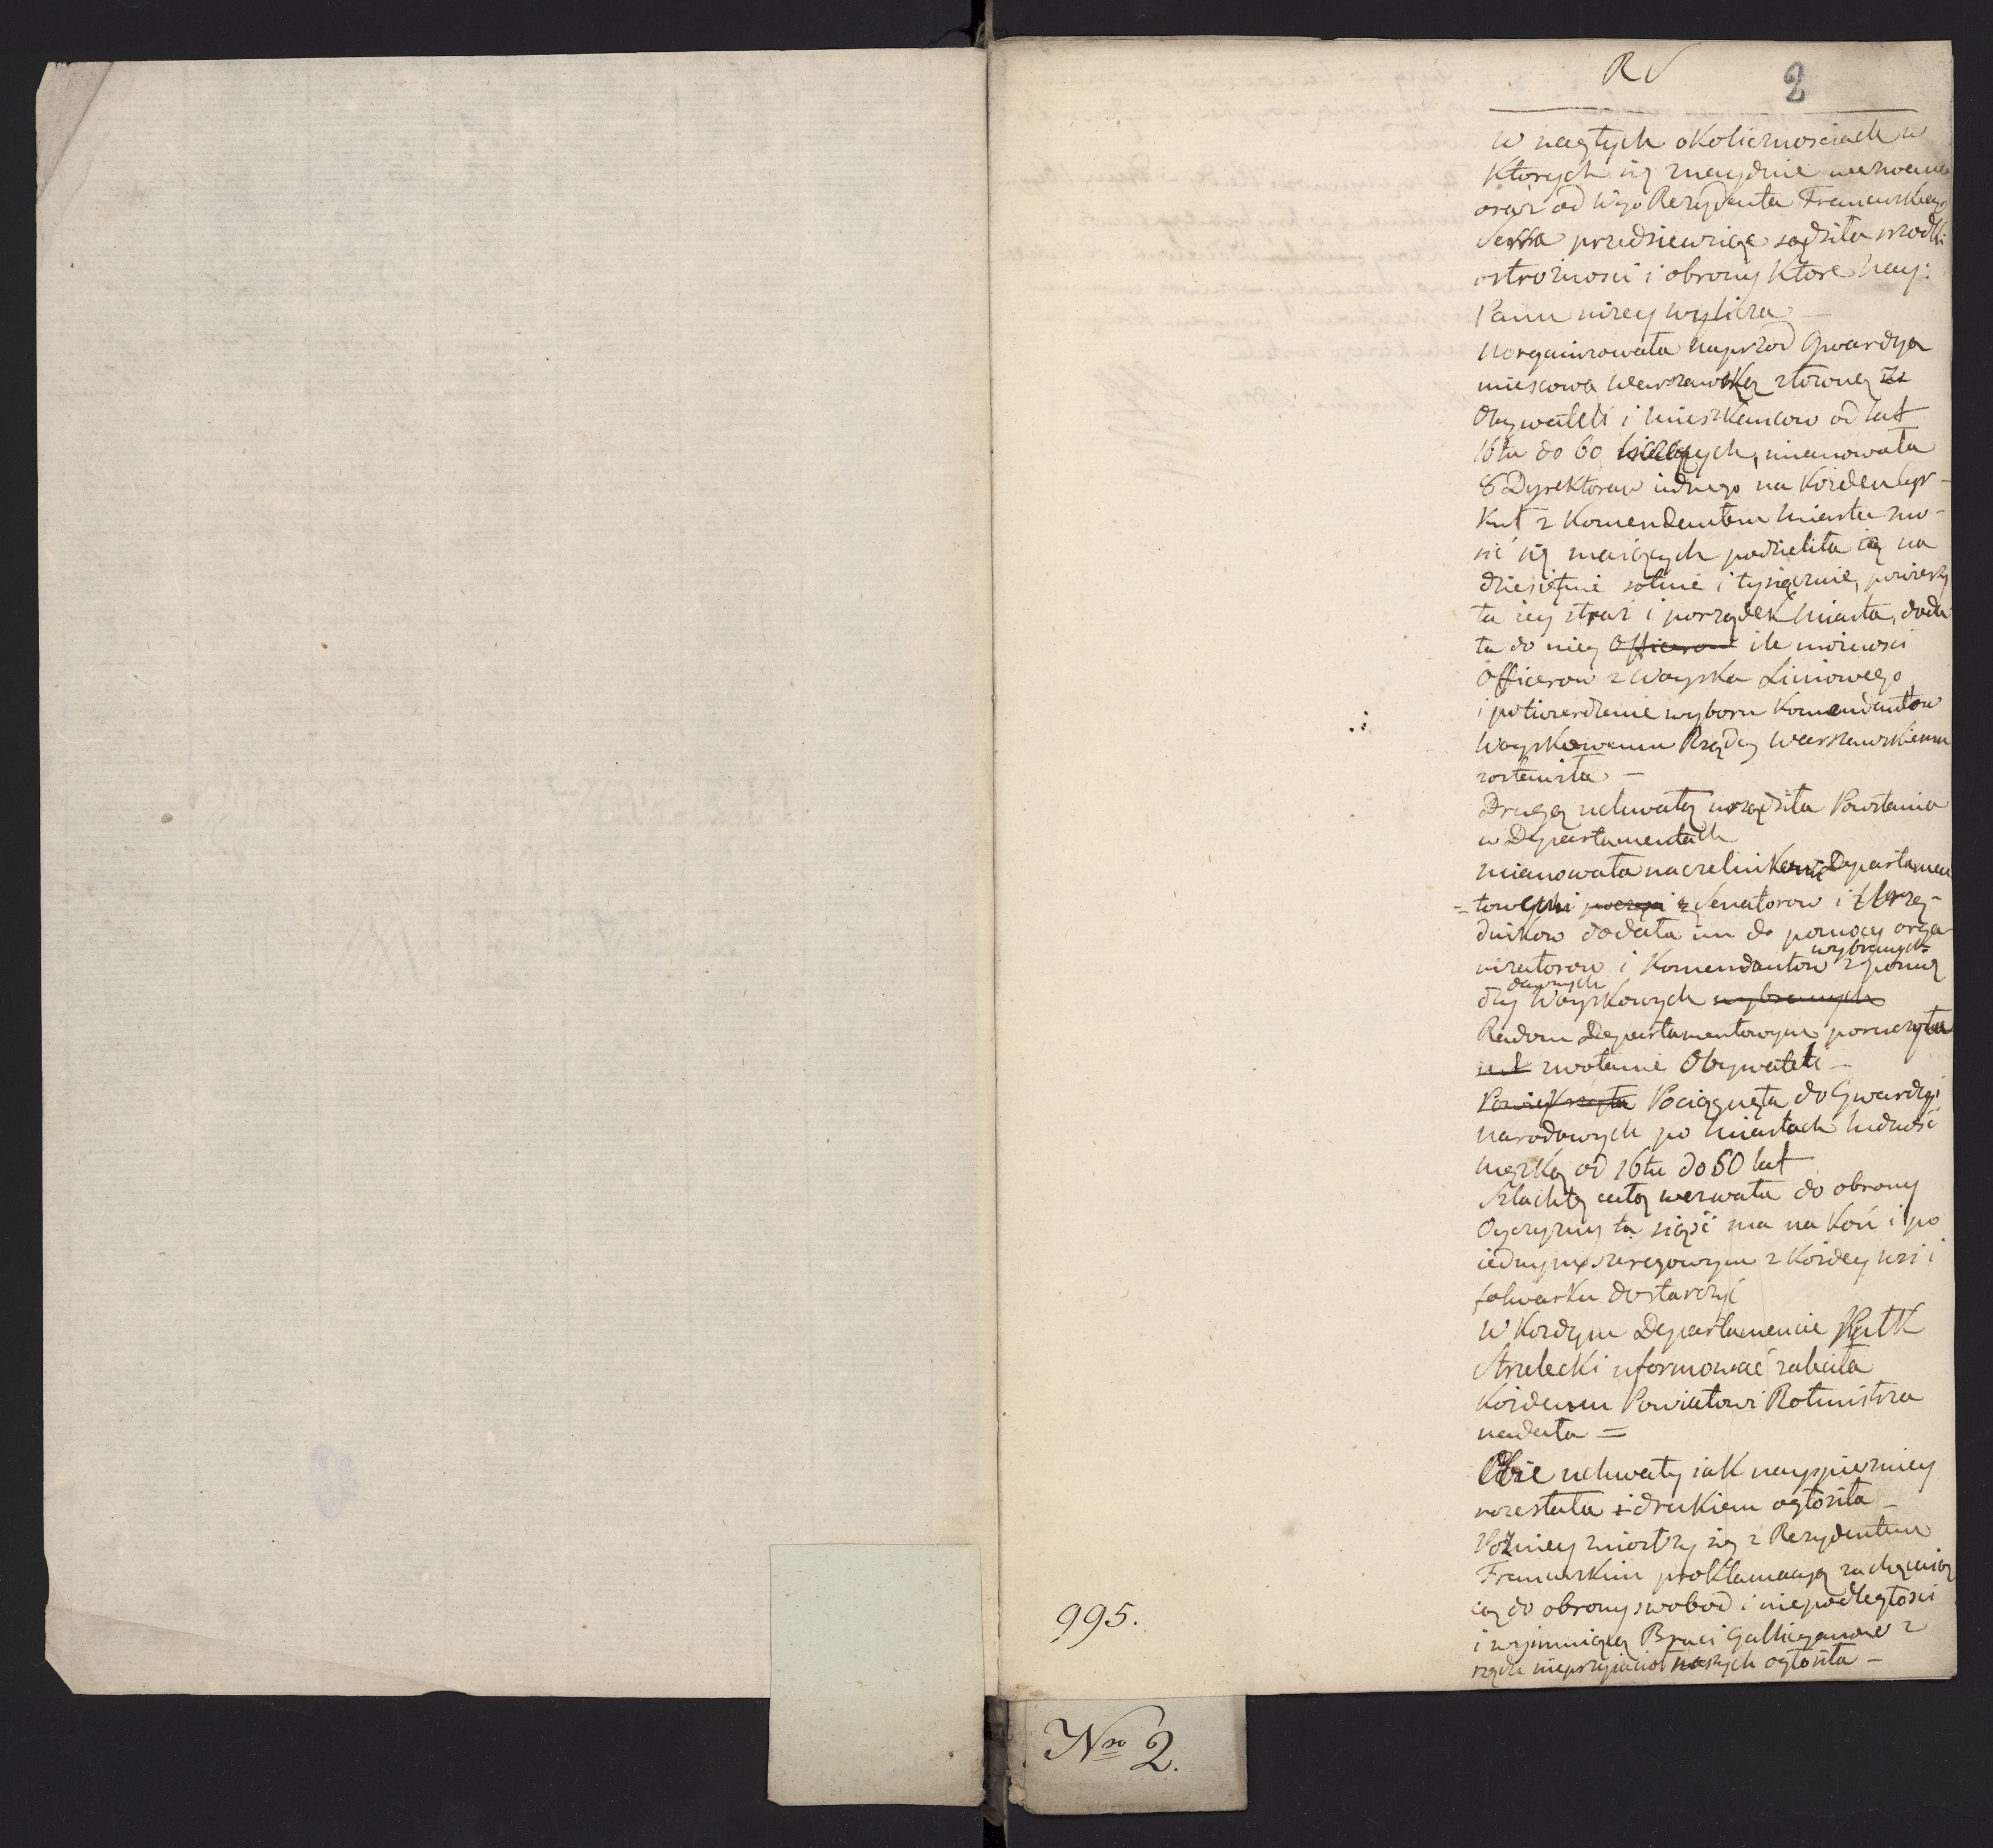 R S
2
w nagłych okolicznosciach w
Ktorych się znayduie wezwana
oraz od Wgo Rezydenta Francuskiego
Serra przedsiewziąc sądziła srodki
ostrożnosci i obrony Ktore Nay:
Panu niżey wylicza —
Uorganizowała naprzod Gwardyą
mieyscową Warszawską złożoną ze
Obywateli i mieszkancow od lat
16tu do 60 liczących, mianowała
8 Dyrektorow iednego na Każden Cyr-
Kuł z Komendantem Miasta zno-
sić się maiących podzieliła ią na
dziesiętnie sotnie i tysiącznie, powierzy
ła iey straż i porządek Miasta, doda
ła do niey Officerow ile możnosci
Officerow z Woyska Liniowego
i potwierdzenie wyboru Komendantow
Woyskowemu Rządcy Warszawskiemu
zostawiła —
Drugą uchwałą urządziła Powstania
w Departamentach
mianowała naczelnikami Departamen
=towymi z Senatorow i Urzę-
dnikow dodała im do pomocy orga
nizatorow i Komendantow wybranych z pomię
dzy dawnych Woyskowych wybranych
Radom Departamentowym poruczyła
zwołanie Obywateli —
Powiększyła Pociągnęła do Gwardyi
Narodowych po Miastach ludność
męzką od 16tu do 60 lat
Szlachtę całą wezwała do obrony
Oyczyzny ta siąść ma na Koń i po
iednym szeregowym z Każdey wsi i
folwarku dostarczyć
W Każdym Departamencie Pułk
Strzelecki uformować zaleciła
Każdemu Powiatowi Rotmistrza
nadała =
Obie uchwały iak nayspieszniey
rozesłała i drukiem ogłosiła —
Pozniey zniosłszy się z Rezydentem
Francuskim proklamacyą zachęcaią
cą do obrony swobod i niepodległosci
i wyimuiącą Braci Gallicyanow z
rzędu nieprzyiacioł naszych ogłosiła —
995.
Nro 2.